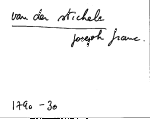 van der stichele
joseph franc.
1790 - 30